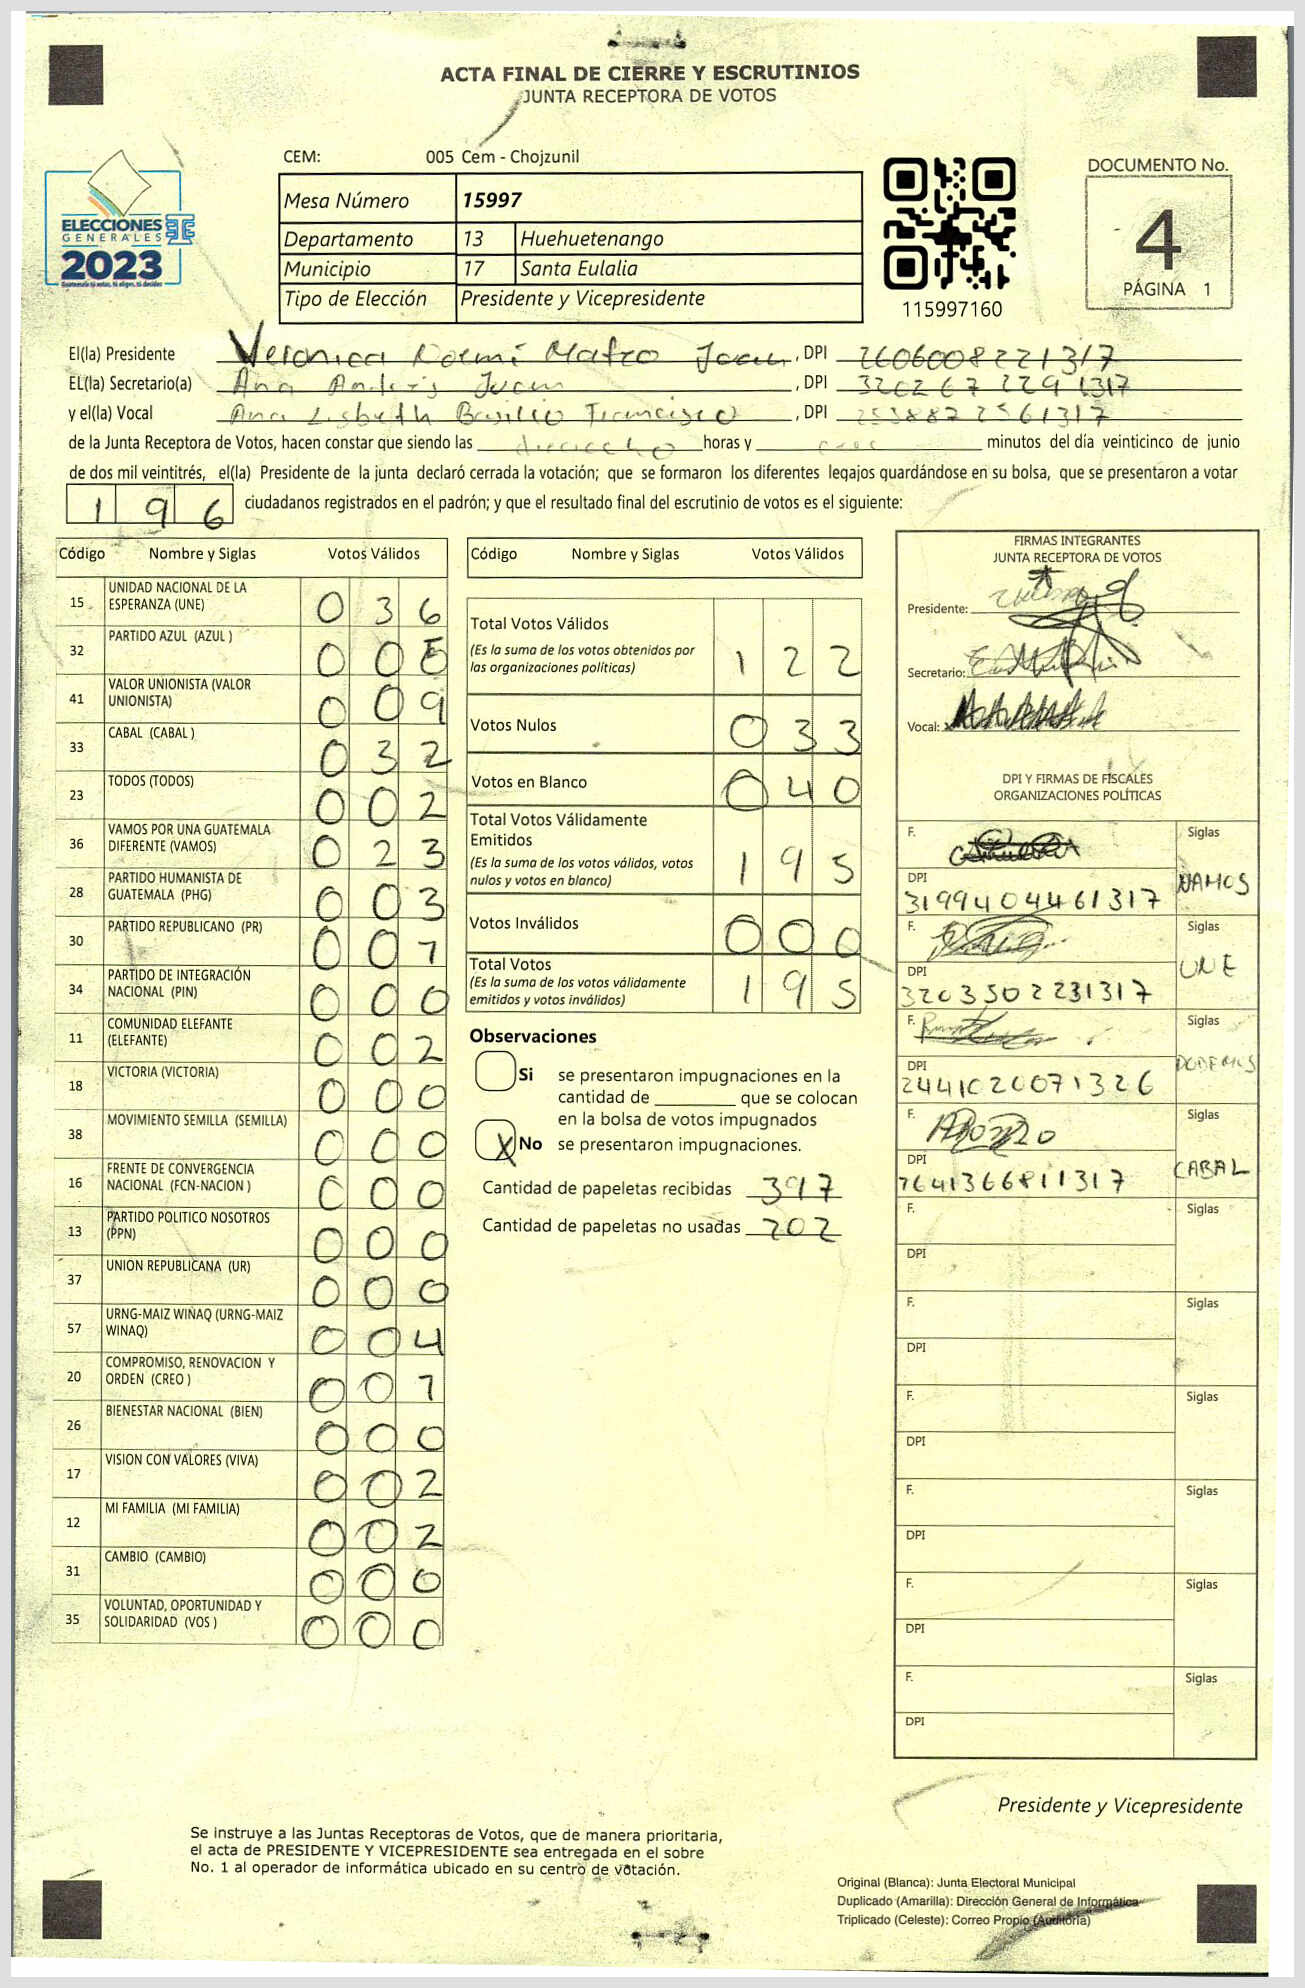 ACTA FINAL DE CIERRE Y ESCRUTINIOS
JUNTA RECEPTORA DE VOTOS
CEM: 005 Cem - Chojzunil
ELECCIONES
GENERALES
2023
Mesa Número 15997
Departamento 13 Huehuetenango
Municipio 17 Santa Eulalia
Tipo de Elección Presidente y Vicepresidente
115997160
DOCUMENTO No.
4
PÁGINA 1
El(la) Presidente Veronica Noemí Mateo Juan, DPI 2606008221317
EL(la) Secretario(a) Ana Andrés Juan, DPI 3202672291317
y el(la) Vocal Ana Lisbeth Basilio Francisco, DPI 2538872561317
de la Junta Receptora de Votos, hacen constar que siendo las dieciocho horas y minutos del día veinticinco de junio
de dos mil veintitrés, el(la) Presidente de la junta declaró cerrada la votación; que se formaron los diferentes legajos guardándose en su bolsa, que se presentaron a votar
196 ciudadanos registrados en el padrón; y que el resultado final del escrutinio de votos es el siguiente:
Código Nombre y Siglas Votos Válidos
15 UNIDAD NACIONAL DE LA
ESPERANZA (UNE) 036
32 PARTIDO AZUL (AZUL ) 00
41 VALOR UNIONISTA (VALOR
UNIONISTA) 009
33 CABAL (CABAL ) 032
23 TODOS (TODOS) 002
36 VAMOS POR UNA GUATEMALA
DIFERENTE (VAMOS) 023
28 PARTIDO HUMANISTA DE
GUATEMALA (PHG) 003
30 PARTIDO REPUBLICANO (PR) 001
34 PARTIDO DE INTEGRACIÓN
NACIONAL (PIN) 000
11 COMUNIDAD ELEFANTE
(ELEFANTE) 002
18 VICTORIA (VICTORIA) 000
38 MOVIMIENTO SEMILLA (SEMILLA) 000
16 FRENTE DE CONVERGENCIA
NACIONAL (FCN-NACION ) 000
13 PARTIDO POLITICO NOSOTROS
(PPN) 000
37 UNION REPUBLICANA (UR) 000
57 URNG-MAIZ WINAQ (URNG-MAIZ
WINAQ) 004
20 COMPROMISO, RENOVACION Y
ORDEN (CREO ) 001
26 BIENESTAR NACIONAL (BIEN) 000
17 VISION CON VALORES (VIVA) 002
12 MI FAMILIA (MI FAMILIA) 002
31 CAMBIO (CAMBIO) 000
35 VOLUNTAD, OPORTUNIDAD Y
SOLIDARIDAD (VOS ) 000
Código Nombre y Siglas Votos Válidos
Total Votos Válidos
(Es la suma de los votos obtenidos por
las organizaciones políticas) 122
Votos Nulos 033
Votos en Blanco 040
Total Votos Válidamente
Emitidos
(Es la suma de los votos válidos, votos
nulos y votos en blanco) 195
Votos Inválidos 000
Total Votos
(Es la suma de los votos válidamente
emitidos y votos inválidos) 195
Observaciones
Si se presentaron impugnaciones en la
cantidad de ________ que se colocan
en la bolsa de votos impugnados
X No se presentaron impugnaciones.
Cantidad de papeletas recibidas 397
Cantidad de papeletas no usadas 202
FIRMAS INTEGRANTES
JUNTA RECEPTORA DE VOTOS
Presidente:
Secretario:
Vocal:
DPI Y FIRMAS DE FISCALES
ORGANIZACIONES POLÍTICAS
F. Siglas
VAMOS
DPI
3199404461317
F. Siglas
UNE
DPI
3203502231317
F. Siglas
PODEMOS
DPI
2441020071326
F. Siglas
CABAL
DPI
7641366811317
F. Siglas
DPI
F. Siglas
DPI
F. Siglas
DPI
F. Siglas
DPI
F. Siglas
DPI
F. Siglas
DPI
Presidente y Vicepresidente
Se instruye a las Juntas Receptoras de Votos, que de manera prioritaria,
el acta de PRESIDENTE Y VICEPRESIDENTE sea entregada en el sobre
No. 1 al operador de informática ubicado en su centro de votación.
Original (Blanca): Junta Electoral Municipal
Duplicado (Amarilla): Dirección General de Informática
Triplicado (Celeste): Correo Propio (Auditoría)